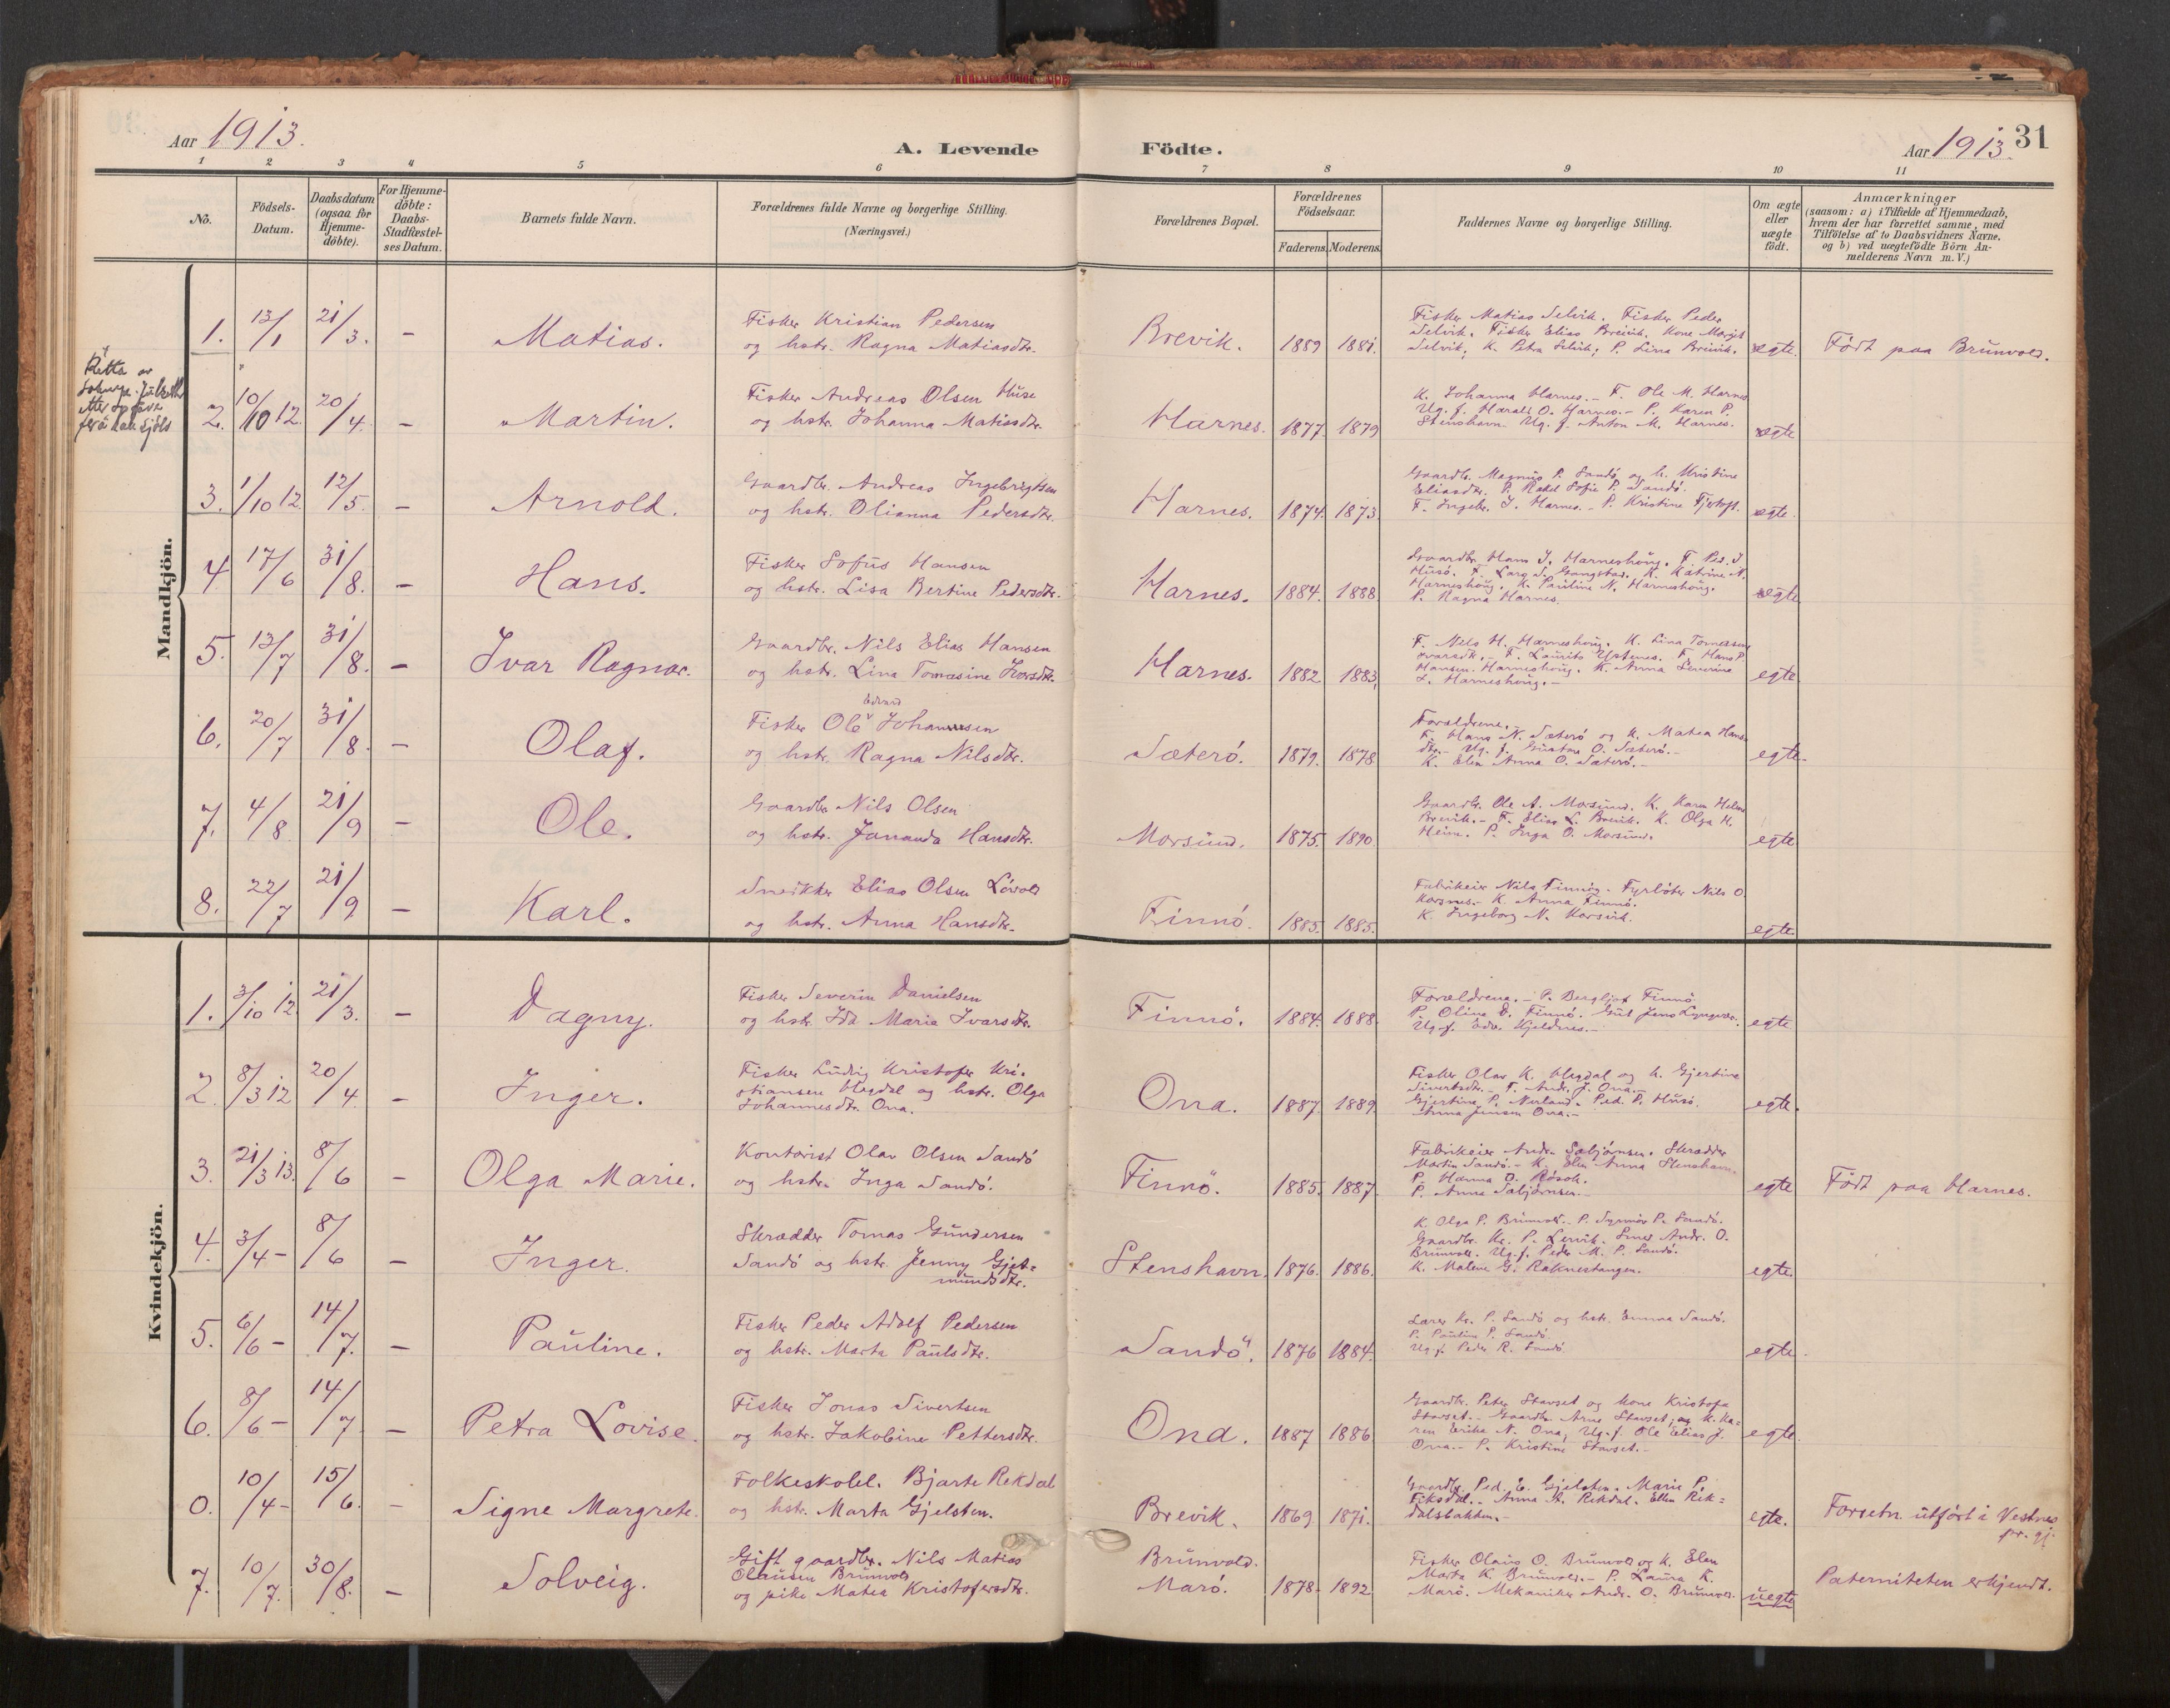 Aar 1913.
A. Levende Födte.
Aar 1913. 31
1 2 3 4 5 6 7 8 9 10 11
No.
Födsels-
Datum.
Daabsdatum
(ogsaa for
Hjemme-
döbte).
For Hjemme-
döbte:
Daabs-
Stadfæstel-
ses Datum.
Barnets fulde Navn.
Forældrenes fulde Navne og borgerlige Stilling.
(Næringsvei.)
Forældrenes Bopæl.
Forældrenes
Födselsaar.
Faderens. Moderens.
Faddernes Navne og borgerlige Stilling.
Om ægte
eller
uægte
födt.
Anmærkninger
(saasom: a) i Tilfælde af Hjemmedaab,
hvem der har forrettet samme, med
Tilföielse af to Daabsvidners Navne,
og b) ved uægtefödte Börn An-
melderens Navn m.V.)
Mandkjön.
1. 13/1 21/3. - Matias.
Fisker Kristian Pedersen
og hstr. Ragna Matiasdtr.
Brevik. 1889 1881.
Fisker Matias Selvik. Fisker Peder
Selvik. Fisker Elias Breivik. Kone Marit
Selvik, K. Petra Selvik, P. Lina Breivik.
egte. Født paa Brunvold.
Retta av
etter opgave
frå han sjölv
2. 10/10 12. 20/4. - Martin.
Fisker Andreas Olsen Huse
og hstr. Johanna Matiasdtr.
Harnes. 1877. 1879
K. Johanna Harnes. - F. Ole M. Harnes
Ug. f. Harald O. Harnes. - P. Karen P.
Stenshavn. Ug. f. Anton M. Harnes.
egte
3. 1/10 12. 12/5. - Arnold.
Gaardbr. Andreas Ingebrigtsen
og hstr. Olianna Pedersdtr.
Harnes. 1874. 1873.
Gaardbr. Magnus P. Sandö og h. Kristine
Eliasdtr. P. Rakel Sofie P. Sandö.
F. Ingebr. J. Harnes. - P. Kristine Fjertoft.
egte.
4. 17/6 31/8. - Hans.
Fisker Sofus Hansen
og hstr. Lisa Bertine Pedersdtr.
Harnes. 1884. 1888.
Gaardbr. Hans J. Harneshaug. F. Ped. J.
Husö. F. Lars S. Gangstad. K. Katrine N.
Harneshaug. K. Pauline N. Harneshaug.
P. Ragna Harnes.
egte
5. 13/7 31/8. - Ivar Ragnar.
Gaardbr. Nils Elias Hansen
og hstr. Lina Tomasine Ivarsdtr.
Harnes. 1882. 1883.
F. Nils H. Harneshaug. K. Lina Tomasine
Ivarsdtr. - F. Laurits Upsenes. F. Hans P.
Hansen Harneshaug. K. Anna Severine
L. Harneshaug. -
egte.
6. 20/7 31/8. - Olaf.
Edvard
Fisker Ole Johansen
og hstr. Ragna Nilsdtr.
Sæterö. 1879. 1878.
Forældrene.
F. Hans N. Sæterö og K. Matea Hans-
dtr. - Ug. f. Gustav O. Sæterö. -
K. Elen Anna O. Sæterö. -
egte.
7. 4/8 21/9 - Ole.
Gaardbr. Nils Olsen
og hstr. Jananda Hansdtr.
Morsund. 1875. 1890.
Gaardbr. Ole A. Morsund. K. Karen Helene
Brevik. - F. Elias L. Brevik. K. Olga H.
Heim. P. Inga O. Morsund.
egte.
8. 22/7 21/9 - Karl.
Snedkker Elias Olsen Lövold
og hstr. Anna Hansdtr.
Finnö. 1885. 1885.
Fabrikeier Nils Finnöy. Fyrböter Nils O.
Korsnes. - K. Anna Finnö.
K. Ingeborg N. Korsvik.
egte.
Kvindekjön.
1. 3/10 12. 21/3. - Dagny.
Fisker Severin Danielsen
og hstr. Ida Marie Ivarsdtr.
Finnö. 1884. 1888.
Forældrene. - P. Bergljot Finnö
P. Oline D. Finnö. Gul Jens Lyngvær.
Ug. f. Edv. Kjeldnes. -
egte
2. 8/3 12 20/4. - Inger.
Fisker Ludvig Kristofer Kri-
stiansen Megdal og hstr. Olga
Johannesdtr. Ona.
Ona. 1887. 1889.
Fisker Olav K. Megdal og h. Gjertine
Sivertsdtr. - F. Andr. J. Ona. -
Gjertine P. Nerland. Ped. P. Husö.
Anna Jensen Ona. -
egte.
3. 21/3 13. 8/6 - Olga Marie.
Kontorist Olav Olsen Sandö
og hstr. Inga Sandö.
Finnö. 1885. 1887.
Fabrikeier Andr. Sæbjörnsen. Skrædder
Martin Sandö. - K. Elen Anna Stenshavn.
P. Hanna O. Rösok.
P. Anna Sæbjörnsen. -
egte Født paa Harnes.
4. 3/4 - 8/6 - Inger.
Skrædder Tomas Gundersen
Sandö og hstr. Jenny Gjet-
mundsdtr.
Stenshavn. 1876. 1886.
K. Olga P. Brunvold. - P. Synnöv P. Sandö.
Gaardbr. Kr. P. Lervik. Smed Andr. O.
Brunvoll. Ug. f. Peder M. P. Sandö.
K. Malene G. Raknestangen.
egte.
5. 6/6 - 14/7. - Pauline.
Fisker Peder Adolf Pedersen
og hstr. Marta Paulsdtr.
Sandö. 1876 1884.
Lærer Kr. P. Sandö og hstr. Emma Sandö.
P. Pauline P. Sandö
Ug. f. Peder R. Sandö
egte.
6. 8/6 - 14/7 - Petra Lovise.
Fisker Jonas Sivertsen
og hstr. Jakobine Pettersdtr.
Ona. 1887 1886
Gaardbr. Peter Stavset og Kone Kristofa
Stavset. - Gaardbr. Arne Stavset, og K. Ka-
ren Erika N. Ona, Ug. f. Ole Elias J.
Ona. - P. Kristine Stavset. -
egte.
0. 10/4 - 15/6. - Signe Margrete.
Folkeskolel. Bjarte Rekdal
og hstr. Marta Gjelsten.
Brevik. 1869. 1871.
Gaardbr. Ped. E. Gjelsten. Marie P.
Fiksdal. - Anna A. Rekdal. Ellen Rek-
dalsbakken. -
egte. Forretn. utfört i Vestnes
pr. gj.
7. 10/7. 30/8. - Solveig.
Gift gaardbr. Nils Matias
Olausen Brunvold
og pike Matea Kristofersdtr.
Brunvold.
Marö. 1878. 1892.
Fisker Olaus O. Brunvold og K. Elen
Marta K. Brunvold. - P. Laura K.
Marö. Mekaniker Andr. O. Brunvold.
uegte Paterniteten erkjendt.